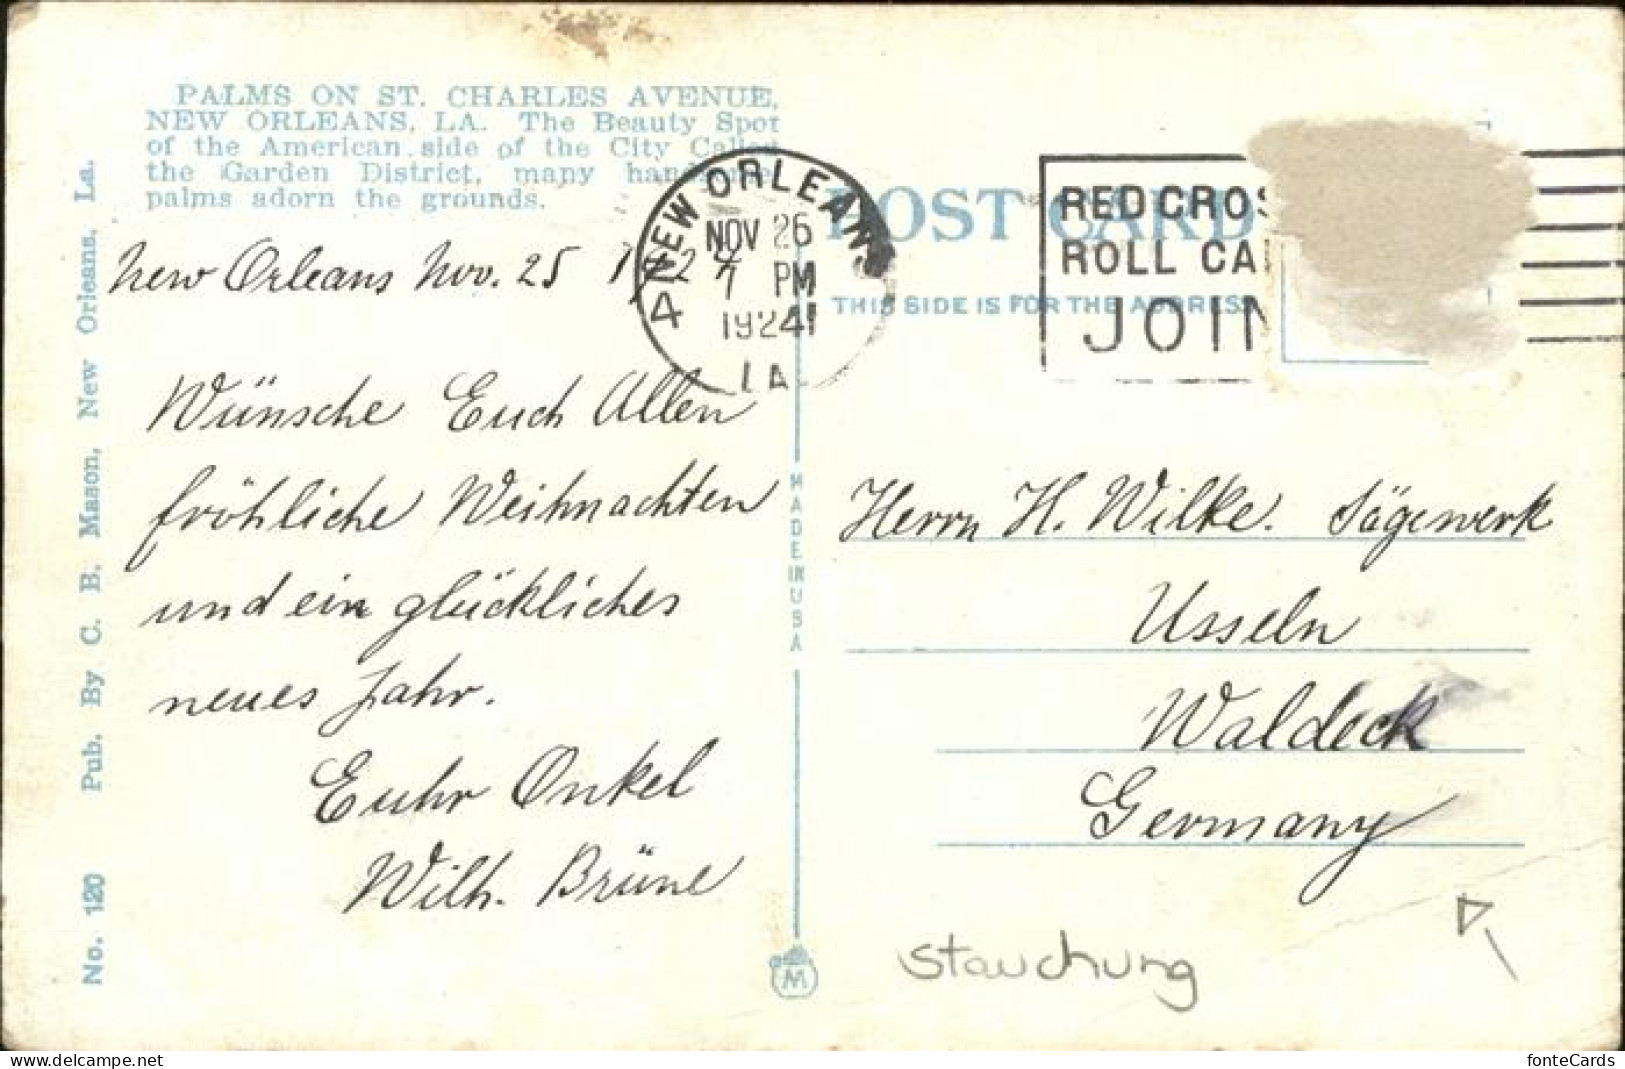 PALMS ON ST. CHARLES AVENUE,
NEW ORLEANS, LA. The Beauty Spot
of the American side of the City Called
the Garden District, many handsome
palms adorn the grounds.
New Orleans Nov. 25 1924
Wünsche Euch Allen
fröhliche Weihnachten
und ein glückliches
neues Jahr.
Euhr Onkel
Wilh. Brüne
No. 120 Pub. By C. B. Mason, New Orleans, La.
NEW ORLEANS
NOV 26
7 PM
1924
LA.
4
MADE IN USA
POST CARD
THIS SIDE IS FOR THE ADDRESS
RED CROS
ROLL CA
JOIN
Herrn H. Wilke. Sägewerk
Usseln
Waldeck
Germany
Stauchung
delcampe.net
fonteCards